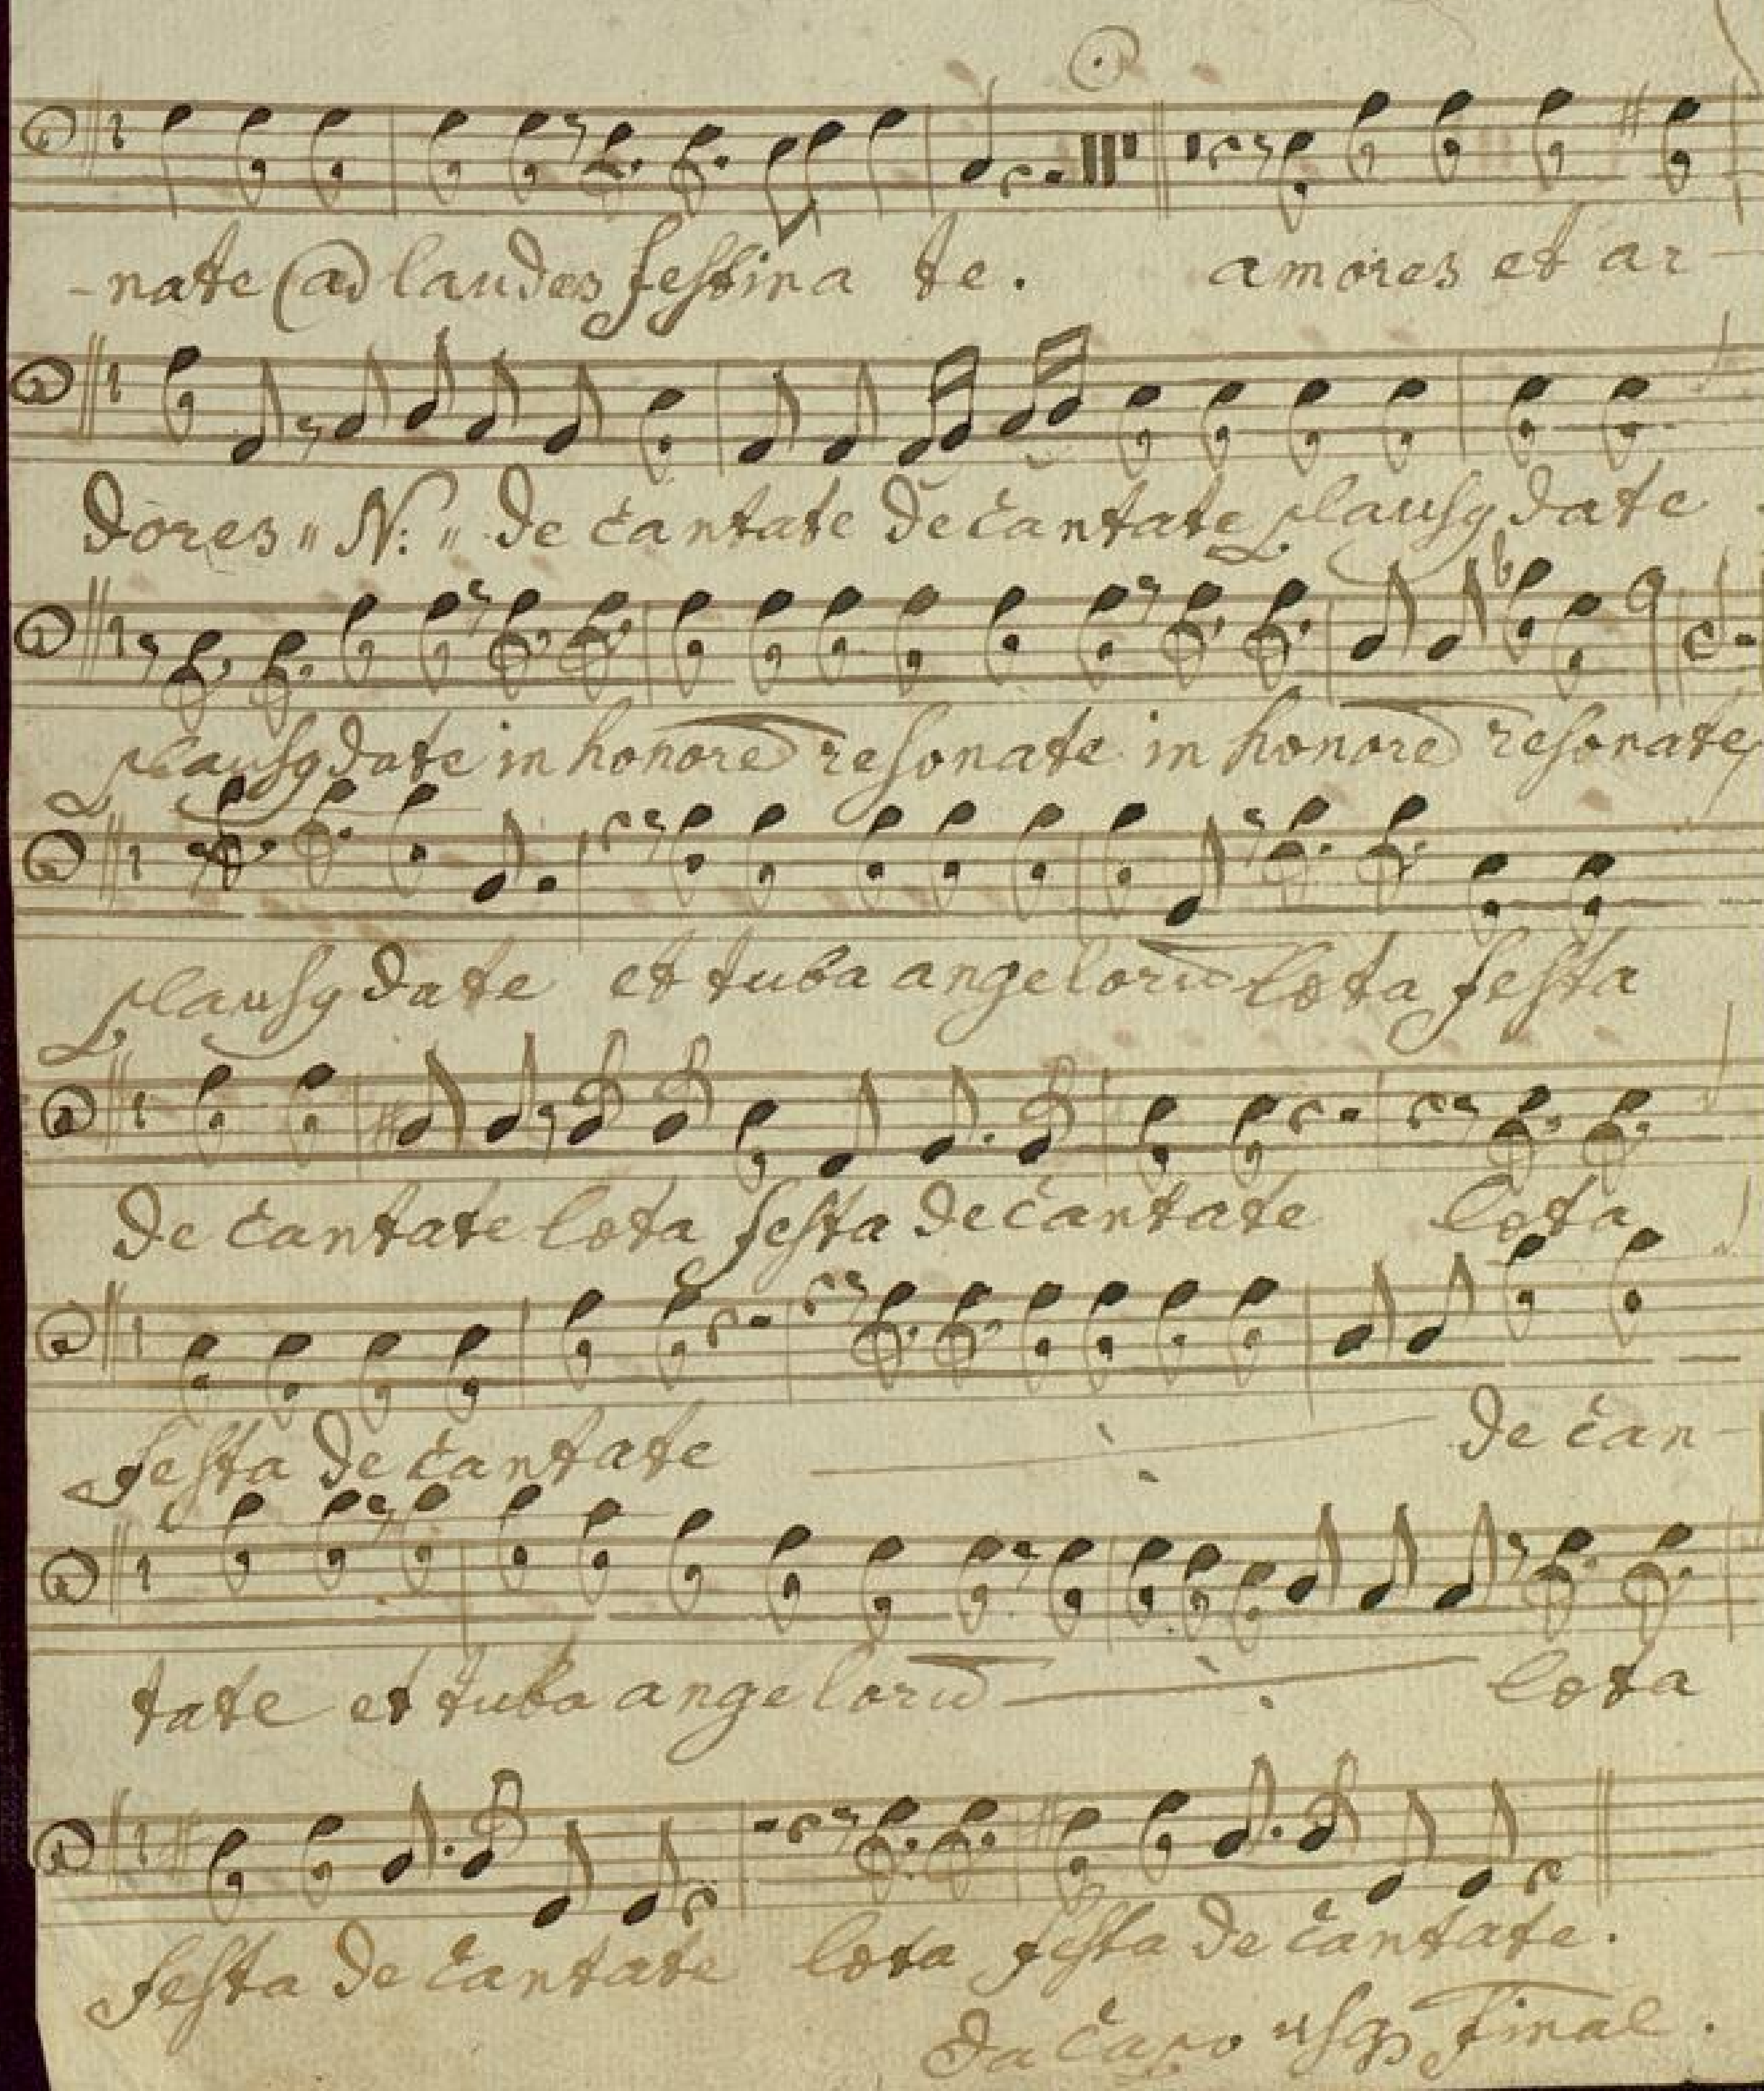 -nate ad laudes festina te. amores et ar-
dores " N: " de cantate de cantate plausq date
plausq date in honore resonate in honore resonate
plausq date et tuba angelorū læta festa
de cantate læta festa de cantate læta
festa de cantate de can-
tate et tuba angelorū læta
festa de cantate læta festa de cantate.
Da capo usq Final.